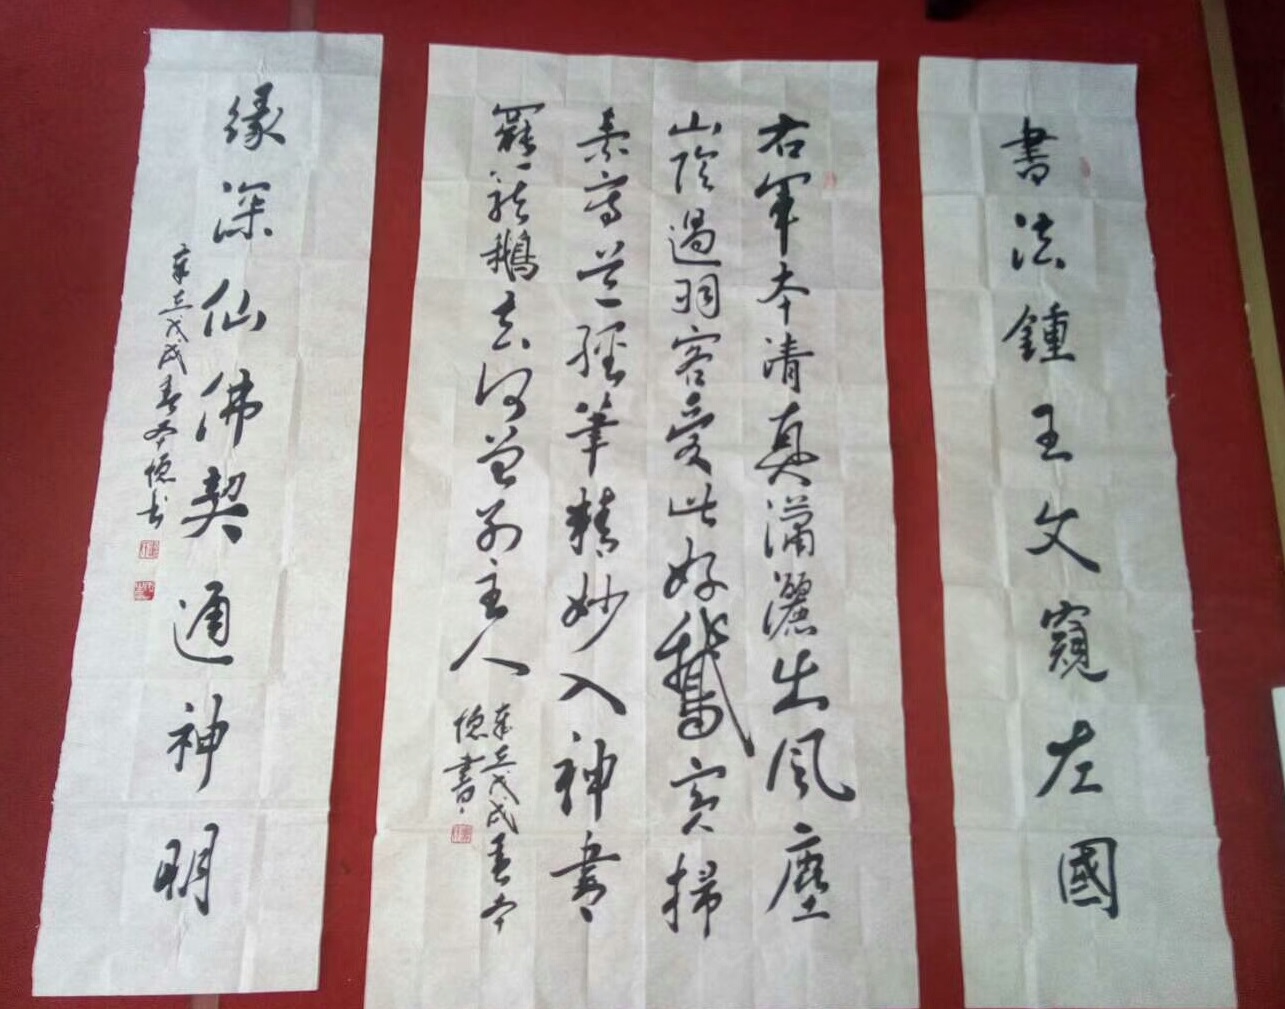 書法鍾王文窺左國
右軍本清真瀟灑出風塵
山陰過羽客愛此好鵝賓掃
素寫道經筆精妙入神書
罷籠鵝去何曾別主人
歲在戊戌春本
德書
緣深仙佛契通神明
歲在戊戌春本德书